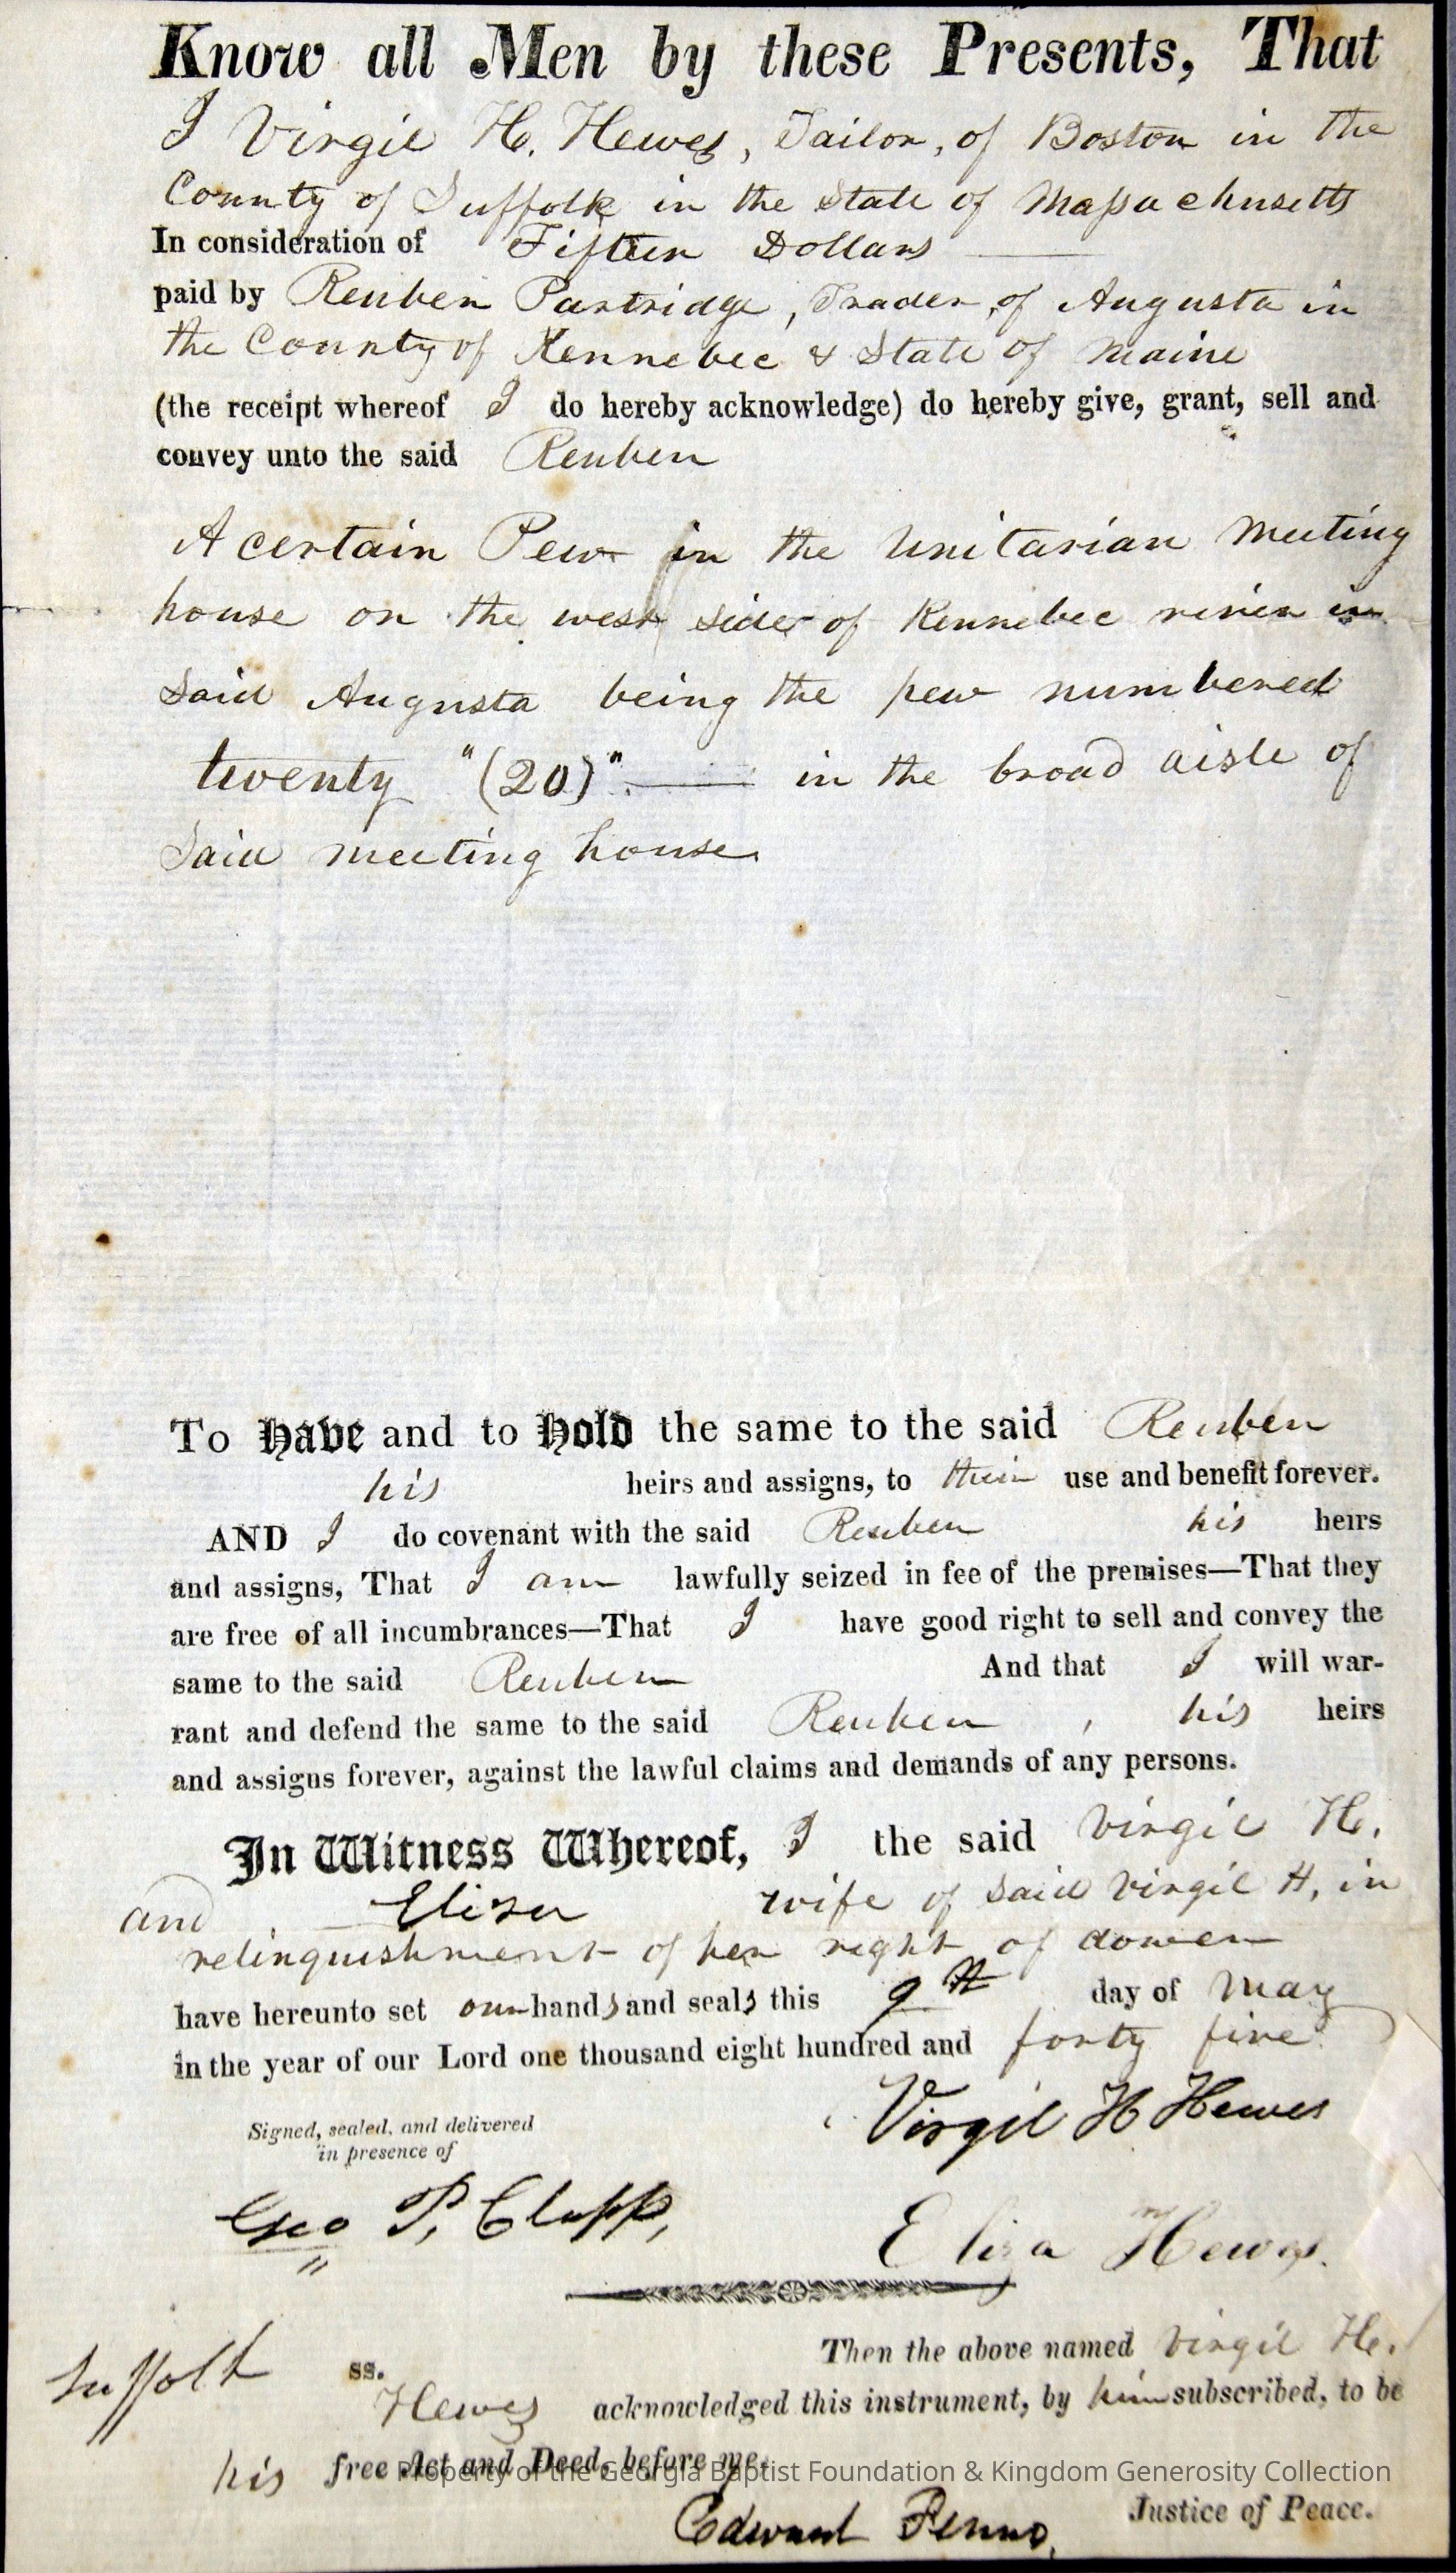 Know all Men by these Presents, That
I Virgil H. Hewes, Tailor, of Boston in the
County of Suffolk in the State of Massachusetts
In consideration of Fifteen Dollars
paid by Reuben Partridge, Trader, of Augusta in
the County of Kennebec & State of Maine
(the receipt whereof I do hereby acknowledge) do hereby give, grant, sell and
convey unto the said Reuben
A certain Pew in the Unitarian Meeting
house on the west side of Kennebec river in
said Augusta being the pew numbered
twenty "(20)". in the broad aisle of
said meeting house.
To Have and to Hold the same to the said Reuben
his heirs and assigns, to their use and benefit forever.
AND I do covenant with the said Reuben his heirs
and assigns, That I am lawfully seized in fee of the premises—That they
are free of all incumbrances—That I have good right to sell and convey the
same to the said Reuben And that I will war-
rant and defend the same to the said Reuben, his heirs
and assigns forever, against the lawful claims and demands of any persons.
In Witness Whereof, I the said Virgil H.
and Eliza wife of said Virgil H, in
relinquishment of her right of dower
have hereunto set our hands and seals this 9th day of May
in the year of our Lord one thousand eight hundred and forty five.
Virgil H Hewes
Signed, sealed, and delivered
in presence of
Geo P. Clapp,
Eliza Hewes.
Suffolk ss. Then the above named Virgil H.
Hewes acknowledged this instrument, by him subscribed, to be
his free Act and Deed, before me.
Property of the Georgia Baptist Foundation & Kingdom Generosity Collection
Edward Fenno, Justice of Peace.